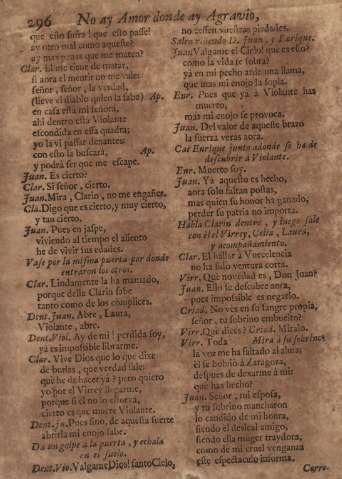 296 No ay Amor donde ay Agravio,
que esto sufra! que esto passe!
ay otro mal como aqueste?
ay mas para que me maten?
Clar. tratar,
si aora el mentir no me vale:
señor, señor, la verdad,
(lleve el diablo quien la sabe) Ap.
en casa está mi señora,
ahi dentro está Violante
escondida en essa quadra;
yo la vi passar denantes:
con esto la buscará, Ap.
y podrà ser que me escape.
Juan. Es cierto?
Clar. Si señor, cierto.
Juan. Mira, Clarin, no me engañes.
Cla. Digo que es cierto, y muy cierto,
y tus cierto.
Juan. Pues en jaspe,
viviendo al tiempo el aliento
he de vivir sus edades.
Vase por la misma puerta por donde
entraron los otros.
Clar. Lindamente la ha mamado,
porque desta Clarin sale
tanto como de los complices.
Dent. Juan. Abre, Laura,
Violante, abre.
Dent. Viol. Ay de mi! perdida soy,
ya es impossible librarme.
Clar. Vive Dios que lo que dixe
de burlas, que verdad sale:
què he de hacer yà? pero quiero
yo por el Virrey llegarme,
porque si èl no lo estorva,
cierto es que muere Violante.
Dent. Ju. Pues sino, de aquesta suerte
abrirla mi enojo sabe.
Da un golpe à la puerta, y echala
en el suelo.
Dent. Vio. Valgame Dios! santo Cielo,
no cessen vuestras piedades.
Salen riñendo D. Juan, y Enrique.
Juan. Valgame el Cielo! que es esto?
como la vida te sobra?
yà en mi pecho arde una llama,
que mas mi enojo la sopla.
Enr. Pues que yà à Violante has
muerto,
mas mi enojo se provoca.
Juan. Del valor de aqueste brazo
la fuerza veràs aora.
Cae Enrique junto adonde se ha de
descubrir à Violante.
Enr. Muerto soy.
Juan. Yà aquesto es hecho,
aora solo faltan postas,
mas quien su honor ha ganado,
perder su patria no importa.
Habla Clarin dentro, y luego sale
con èl el Virrey, Celia, Laura,
y acompañamiento.
Clar. El hallar à Vuecelencia
no ha sido ventura corta.
Virr. Què novedad es, Don Juan?
Juan. Ello se descubre aora,
pues impossible es negarlo.
Criad. No vès en su sangre propia,
señor, tu sobrino embuelto?
Virr. Què dices? Criad. Miralo.
Virr. Toda Mira à su sobrino
la voz me ha faltado al alma;
èl se bolviò à Zaragoza,
despues de dexarte à mi?
què has hecho?
Juan. Señor, mi esposa,
y tu sobrino mancharon
lo candido de mi honra,
siendo el desleal amigo,
siendo ella muger traydora,
como de mi cruel venganza
este espectaculo informa.
Corre.